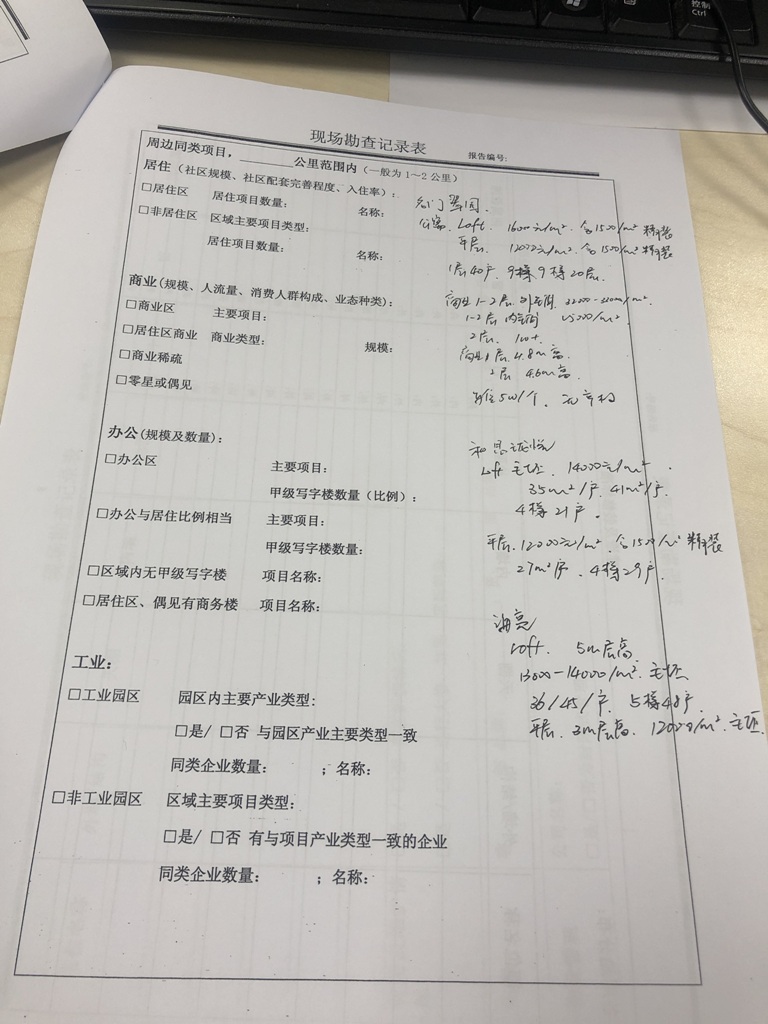 控制
Ctrl
现场勘查记录表
报告编号:
周边同类项目，______公里范围内（一般为 1～2 公里）
居住（社区规模、社区配套完善程度、入住率）:
□居住区 居住项目数量: 名称:
公寓. Loft. 16000元/m². 含1500/m² 精装
□非居住区 区域主要项目类型:
平层. 12000元/m². 含1500/m² 精装
居住项目数量: 名称:
1层40户. 9梯 20层.
商业(规模、人流量、消费人群构成、业态种类):
商业1-2层
□商业区 主要项目:
1-2层
□居住区商业 商业类型: 规模:
2层.
□商业稀疏
商业1层 4.8m高.
2层 4.6m高.
□零星或偶见
办公(规模及数量):
□办公区 主要项目:
Loft 毛坯. 14000元/m².
甲级写字楼数量（比例）:
35m²/户. 41m²/户.
4梯21户.
□办公与居住比例相当 主要项目:
甲级写字楼数量:
平层. 12000元/m². 含1500/m² 精装
□区域内无甲级写字楼 项目名称:
27m²/户. 4梯29户.
□居住区、偶见有商务楼 项目名称:
Loft. 5m层高.
13000-14000/m². 毛坯
36/45/户. 5梯48户.
平层. 3m层高. 12000/m². 毛坯.
工业:
□工业园区 园区内主要产业类型:
□是/ □否 与园区产业主要类型一致
同类企业数量: ；名称:
□非工业园区 区域主要项目类型:
□是/ □否 有与项目产业类型一致的企业
同类企业数量: ；名称: